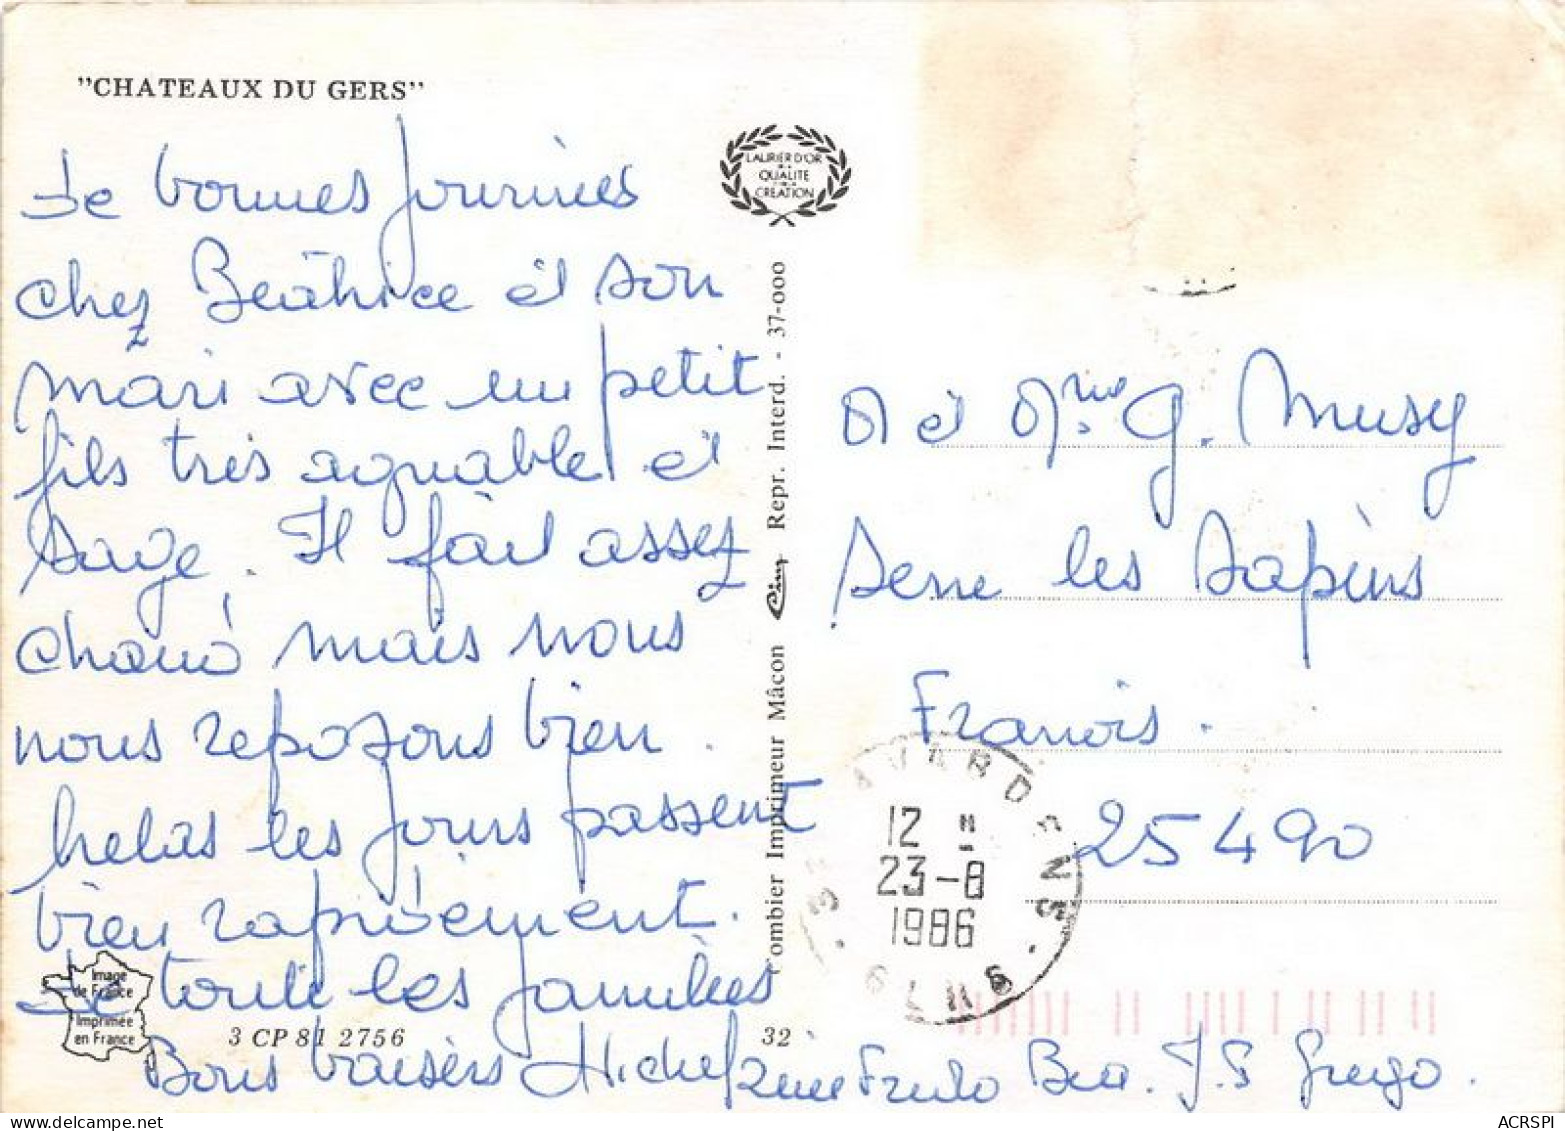 "CHATEAUX DU GERS"
De bonnes journées
chez Béatrice et son
mari avec un petit
fils très agréable et
sage. Il fait assez
chaud mais nous
nous reposons bien.
helas les jours passent
bien rapidement.
De toute les familles
Bons baisers Michel
Bea. J.S Grego.
LAURIER D'OR
DE LA
QUALITE
CREATION
Combier Imprimeur Mâcon Cim Repr. Interd. - 37-000
M et Mme G. Musy
Serre les Sapins
Franois.
25490
12 H
23-8
1986
32 GERS
Image
de France
Imprimée
en France
3 CP 81 2756
32
ACRSPI